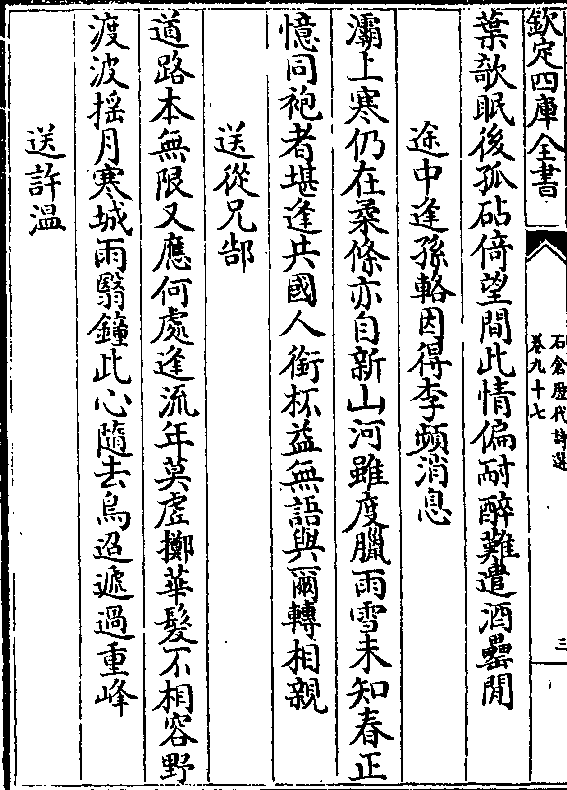 欽定四庫全書
石倉歴代詩選
卷九十七
三
葉欹眠後孤砧倚望間此情偏耐醉難遣酒罍閒
途中逢孫輅因得李頻消息
灞上寒仍在柔條亦自新山河雖度臘雨雪未知春正
憶同袍者堪逢共國人銜杯益無語與爾轉相親
送從兄郜
道路本無限又應何處逢流年莫虛擲華髮不相容野
渡波揺月寒城雨翳鐘此心隨去鳥迢遞過重峰
送許温